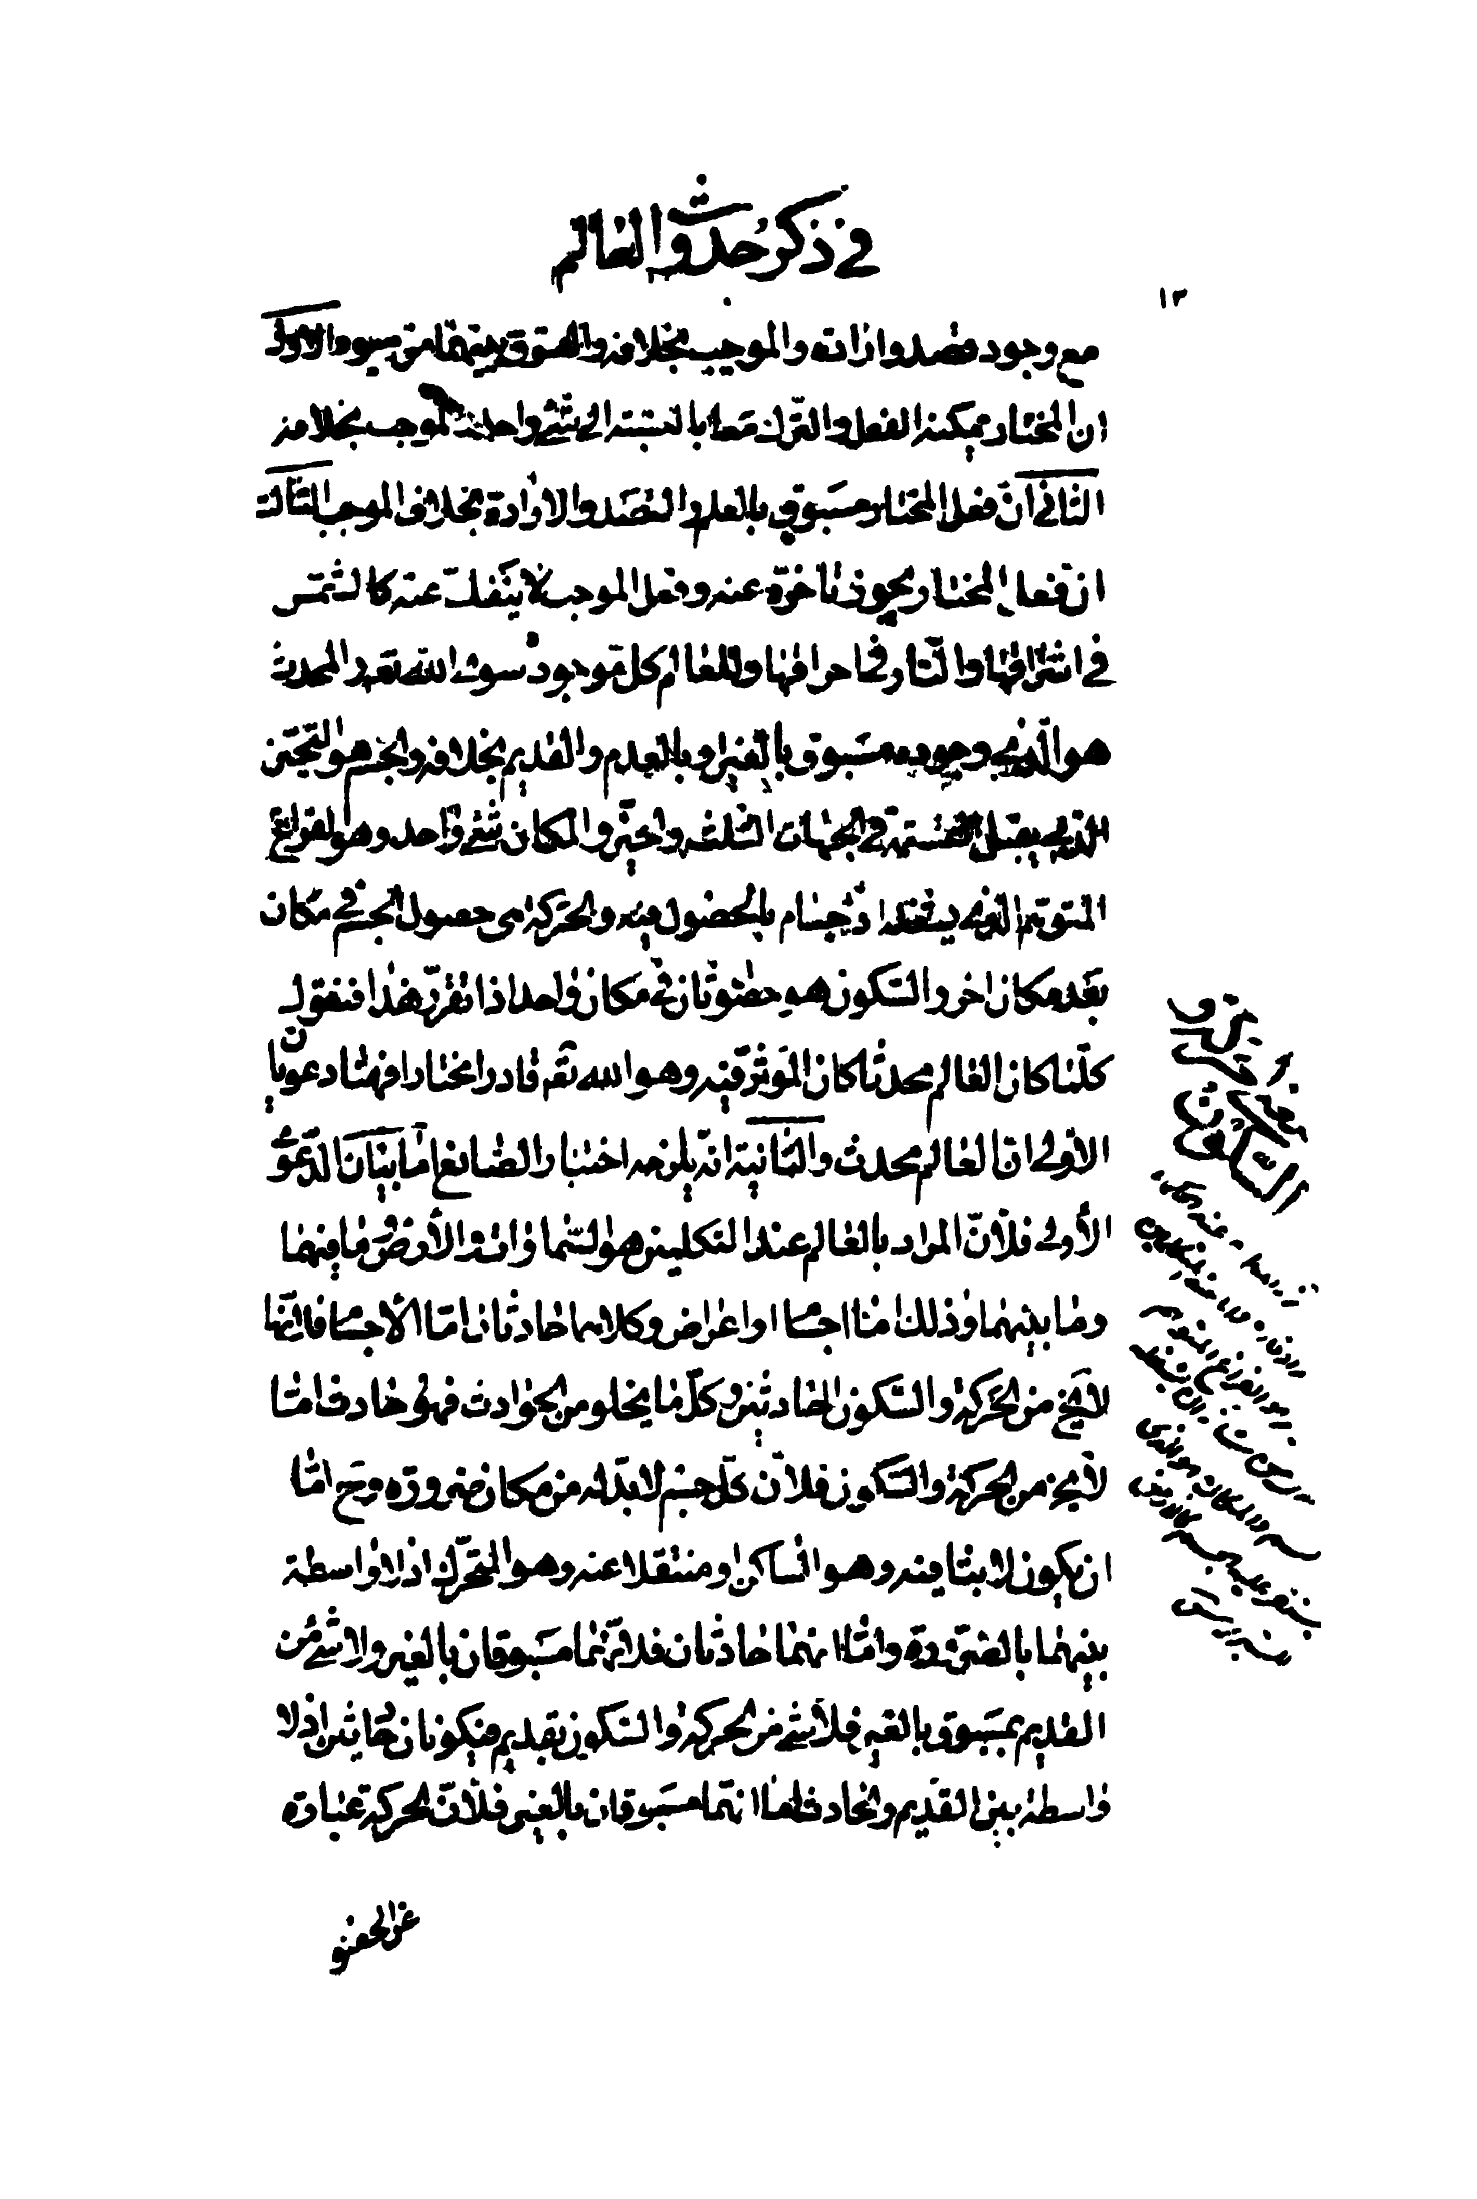 في ذكر حدوث العالم
١٣
مع وجود قصد وارادته والموجب بخلافه والفرق بينهما من وجوه الاول
ان المختار يمكنه الفعل والترك معا بالنسبة الى شئ واحد الموجب بخلافه
الثاني ان فعل المختار مسبوق بالعلم والقصد والارادة بخلاف الموجب الثالث
ان فعل المختار يجوز تاخره عنه وفعل الموجب لا ينفك عنه كالشمس
في اشراقها والنار في احراقها والعالم كل موجود سوى الله تعم المحدث
هو الذي وجوده مسبوق بالغير او بالعدم والقديم بخلافه والجسم هو المتحيز
الذي يقبل القسمة في الجهات الثلثة والحيز والمكان شئ واحد وهو الفراغ
المتوهم الذي يشغله الاجسام بالحصول فيه والحركة هي حصول الجسم في مكان
بعد مكان اخر والسكون هو حصول ثان في مكان واحد اذا تقرر هذا فنقول
كلما كان العالم محدثا كان المؤثر فيه وهو الله تعم قادرا مختارا فهنا دعويان
الاولى ان العالم محدث والثانية انه يلزمه اختيار الصانع اما بيان الدعوى
الأولى فلان المراد بالعالم عند المتكلمين هو السموات والأرض وما فيهما
وما بينهما وذلك اما اجسام او اعراض وكلاهما حادثان اما الأجسام فانها
لا يخ من الحركة والسكون الحادثين وكل ما يخلو من الحوادث فهو حادث اما
لا يخ من الحركة والسكون فلان كل جسم لا بد له من مكان ضرورة وح اما
ان يكون لابثا فيه وهو الساكن او منتقلا عنه وهو المتحرك اذ لا واسطة
بينهما بالضرورة واما انهما حادثان فلانهما مسبوقان بالغير ولا شئ من
القديم بمسبوق بالغير فلا شئ من الحركة والسكون بقديم فيكونان حادثين اذ لا
واسطة بين القديم والحادث اما انهما مسبوقان بالغير فلان الحركة عبارة